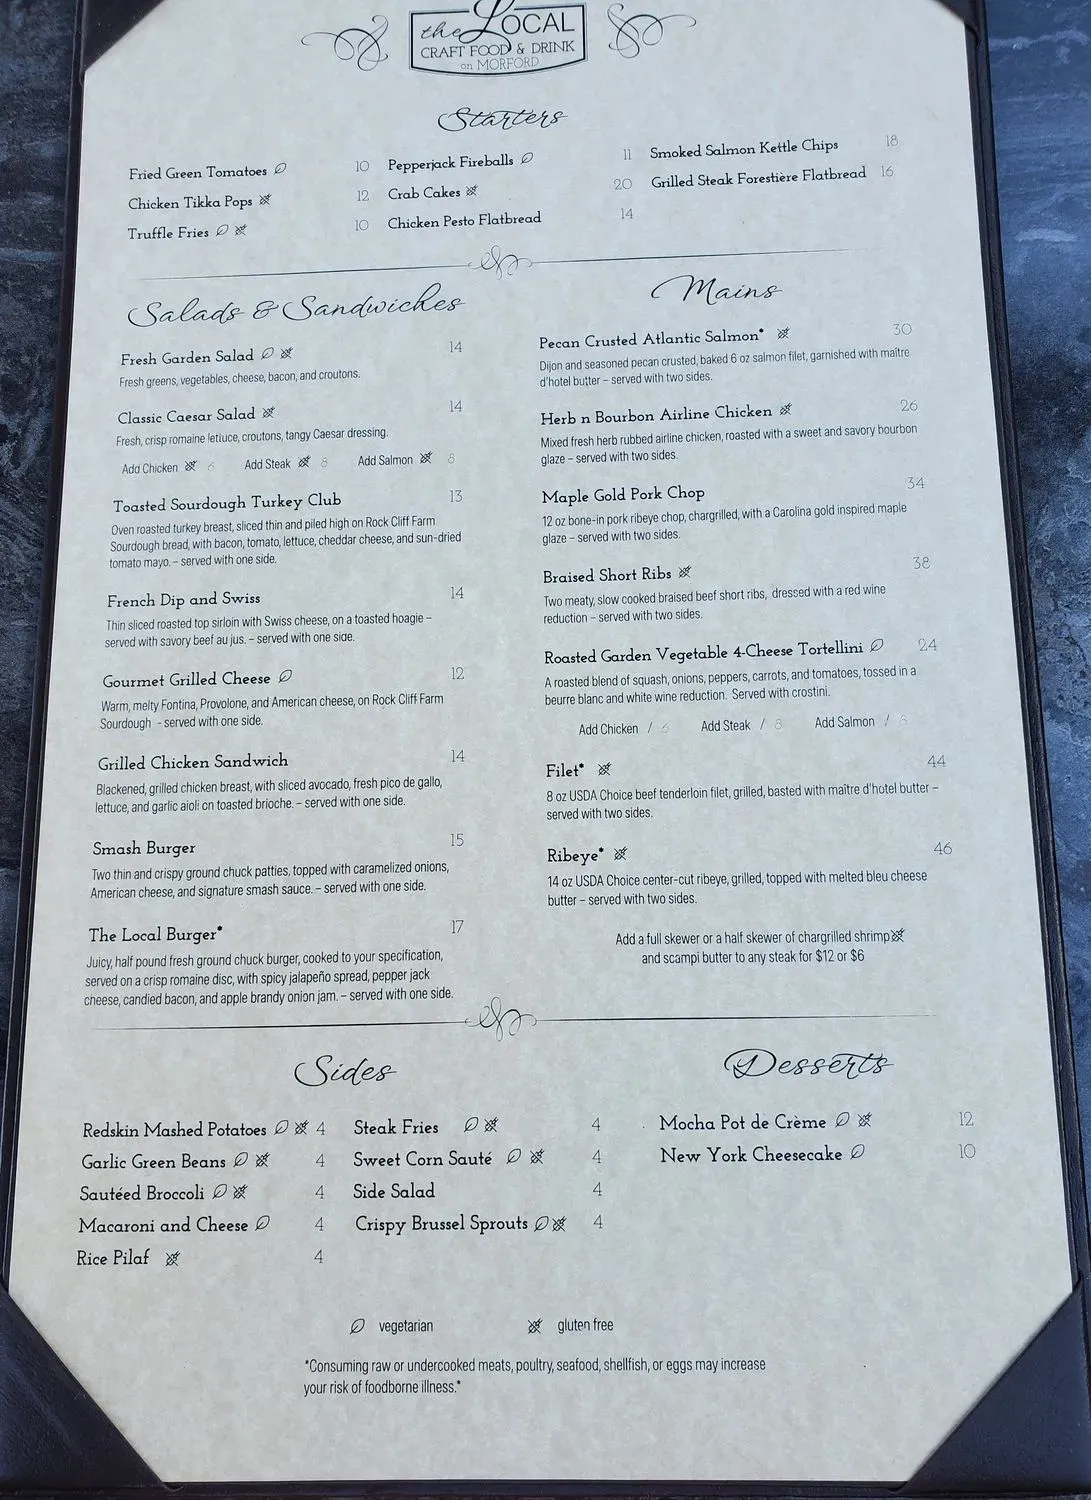 the Local
CRAFT FOOD & DRINK
on MORFORD
Starters
Fried Green Tomatoes 10
Chicken Tikka Pops 12
Truffle Fries 10
Pepperjack Fireballs 11
Crab Cakes 20
Chicken Pesto Flatbread 14
Smoked Salmon Kettle Chips 18
Grilled Steak Forestière Flatbread 16
Salads & Sandwiches
Fresh Garden Salad 14
Fresh greens, vegetables, cheese, bacon, and croutons.
Classic Caesar Salad 14
Fresh, crisp romaine lettuce, croutons, tangy Caesar dressing.
Add Chicken 6 Add Steak 8 Add Salmon 8
Toasted Sourdough Turkey Club 13
Oven roasted turkey breast, sliced thin and piled high on Rock Cliff Farm
Sourdough bread, with bacon, tomato, lettuce, cheddar cheese, and sun-dried
tomato mayo. – served with one side.
French Dip and Swiss 14
Thin sliced roasted top sirloin with Swiss cheese, on a toasted hoagie –
served with savory beef au jus. – served with one side.
Gourmet Grilled Cheese 12
Warm, melty Fontina, Provolone, and American cheese, on Rock Cliff Farm
Sourdough - served with one side.
Grilled Chicken Sandwich 14
Blackened, grilled chicken breast, with sliced avocado, fresh pico de gallo,
lettuce, and garlic aioli on toasted brioche. – served with one side.
Smash Burger 15
Two thin and crispy ground chuck patties, topped with caramelized onions,
American cheese, and signature smash sauce. – served with one side.
The Local Burger* 17
Juicy, half pound fresh ground chuck burger, cooked to your specification,
served on a crisp romaine disc, with spicy jalapeño spread, pepper jack
cheese, candied bacon, and apple brandy onion jam. – served with one side.
Mains
Pecan Crusted Atlantic Salmon* 30
Dijon and seasoned pecan crusted, baked 6 oz salmon filet, garnished with maître
d'hotel butter – served with two sides.
Herb n Bourbon Airline Chicken 26
Mixed fresh herb rubbed airline chicken, roasted with a sweet and savory bourbon
glaze – served with two sides.
Maple Gold Pork Chop 34
12 oz bone-in pork ribeye chop, chargrilled, with a Carolina gold inspired maple
glaze – served with two sides.
Braised Short Ribs 38
Two meaty, slow cooked braised beef short ribs, dressed with a red wine
reduction – served with two sides.
Roasted Garden Vegetable 4-Cheese Tortellini 24
A roasted blend of squash, onions, peppers, carrots, and tomatoes, tossed in a
beurre blanc and white wine reduction. Served with crostini.
Add Chicken / 6 Add Steak / 8 Add Salmon /
Filet* 44
8 oz USDA Choice beef tenderloin filet, grilled, basted with maître d'hotel butter –
served with two sides.
Ribeye* 46
14 oz USDA Choice center-cut ribeye, grilled, topped with melted bleu cheese
butter – served with two sides.
Add a full skewer or a half skewer of chargrilled shrimp
and scampi butter to any steak for $12 or $6
Sides
Redskin Mashed Potatoes 4
Garlic Green Beans 4
Sautéed Broccoli 4
Macaroni and Cheese 4
Rice Pilaf 4
Steak Fries 4
Sweet Corn Sauté 4
Side Salad 4
Crispy Brussel Sprouts 4
Desserts
Mocha Pot de Crème 12
New York Cheesecake 10
vegetarian gluten free
*Consuming raw or undercooked meats, poultry, seafood, shellfish, or eggs may increase
your risk of foodborne illness.*